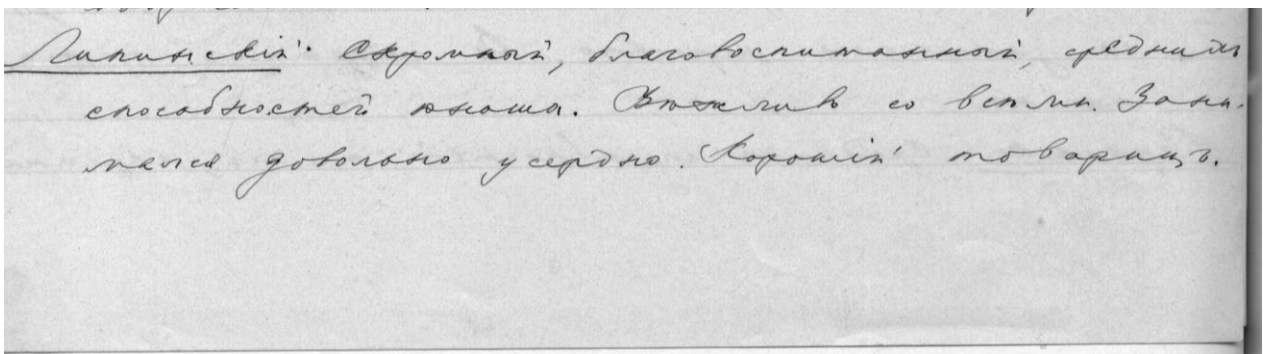 Липинскій: Скромный, благовоспитанный, среднихъ
способностей юноша. Вѣжливъ со всѣми. Зани-
мался довольно усердно. Хорошій товарищъ.